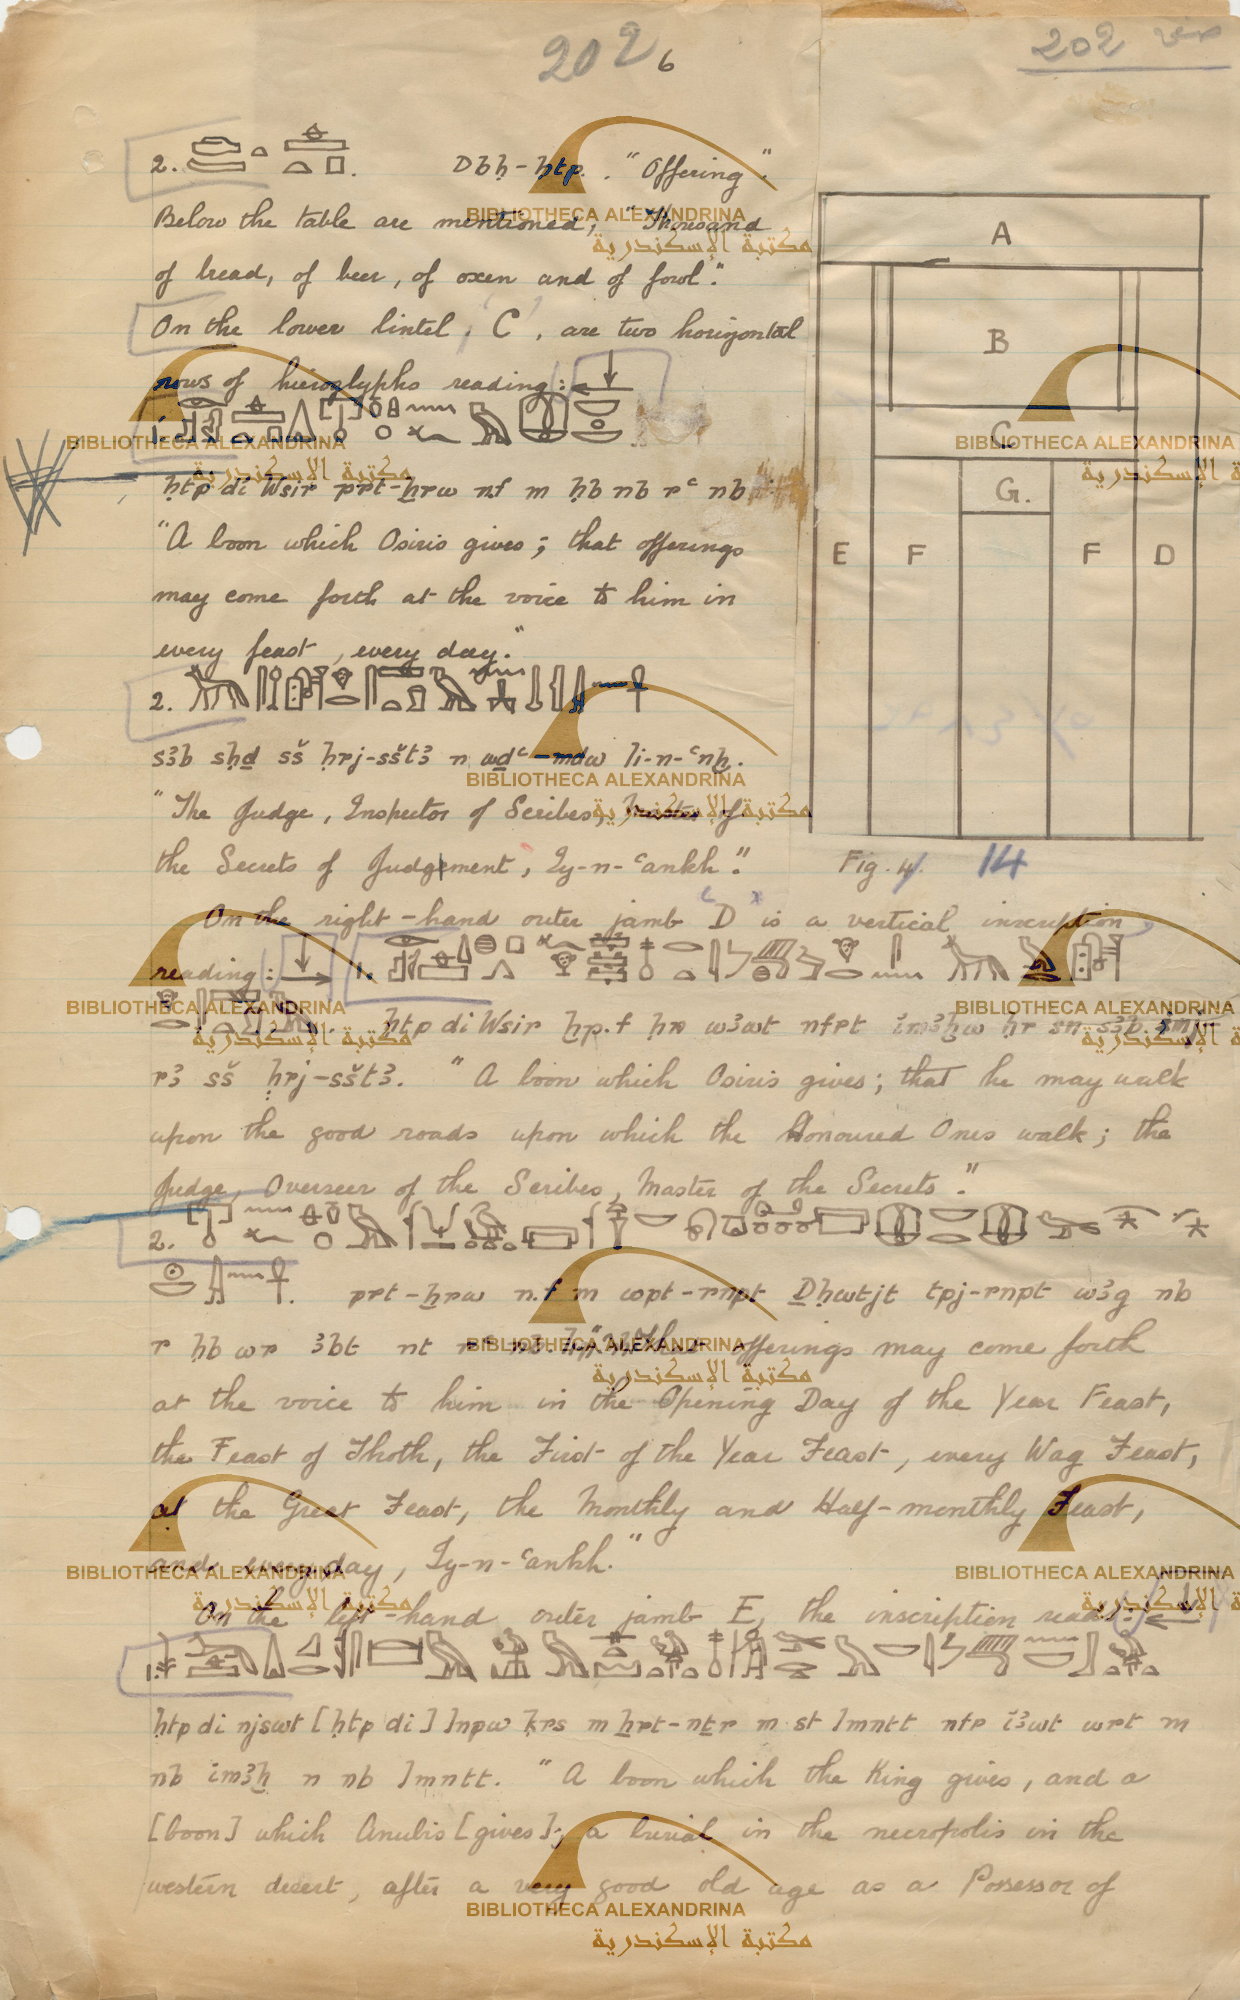 202
6
202
2. Dbḥ-ḥtp. "Offering".
Below the table are mentioned, "Thousand
of bread, of beer, of oxen and of fowl".
On the lower lintel, 'C', are two horizontal
rows of hieroglyphs reading:
1.
ḥtp di Wsir prt-ḫrw nf m ḥb nb rꜥ nb
"A boon which Osiris gives; that offerings
may come forth at the voice to him in
every feast, every day."
2.
sꜣb sḥḏ sš ḥrj-sštꜣ n wḏꜥ-mdw Ii-n-ꜥnḫ.
"The Judge, Inspector of Scribes, Master of
the Secrets of Judgement, Iy-n-ꜥankh."
A
B
C
G.
E F F D
Fig. 14
On the right-hand outer jamb 'D' is a vertical inscription
reading: 1.
ḥtp di Wsir ḫp.f ḥr wꜣwt nfrt imꜣḫw ḥr sn sꜣb imj-
rꜣ sš ḥrj-sštꜣ. "A boon which Osiris gives; that he may walk
upon the good roads upon which the Honoured Ones walk; the
Judge, Overseer of the Scribes, Master of the Secrets".
2.
prt-ḫrw n.f m wpt-rnpt Ḏḥwtjt tpj-rnpt wꜣg nb
r ḥb wr ꜣbt nt offerings may come forth
at the voice to him in the Opening Day of the Year Feast,
the Feast of Thoth, the First of the Year Feast, every Wag Feast,
at the Great Feast, the Monthly and Half-monthly Feast,
and every day, Iy-n-ꜥankh."
On the left-hand outer jamb E, the inscription reads:
1.
ḥtp di njswt [ḥtp di] Inpw ḳrs m ḫrt-nṯr m st Imntt nfr iꜣwt wrt m
nb imꜣḫ n nb Imntt. "A boon which the King gives, and a
[boon] which Anubis [gives]; a burial in the necropolis in the
western desert, after a very good old age as a Possessor of
BIBLIOTHECA ALEXANDRINA
مكتبة الإسكندرية